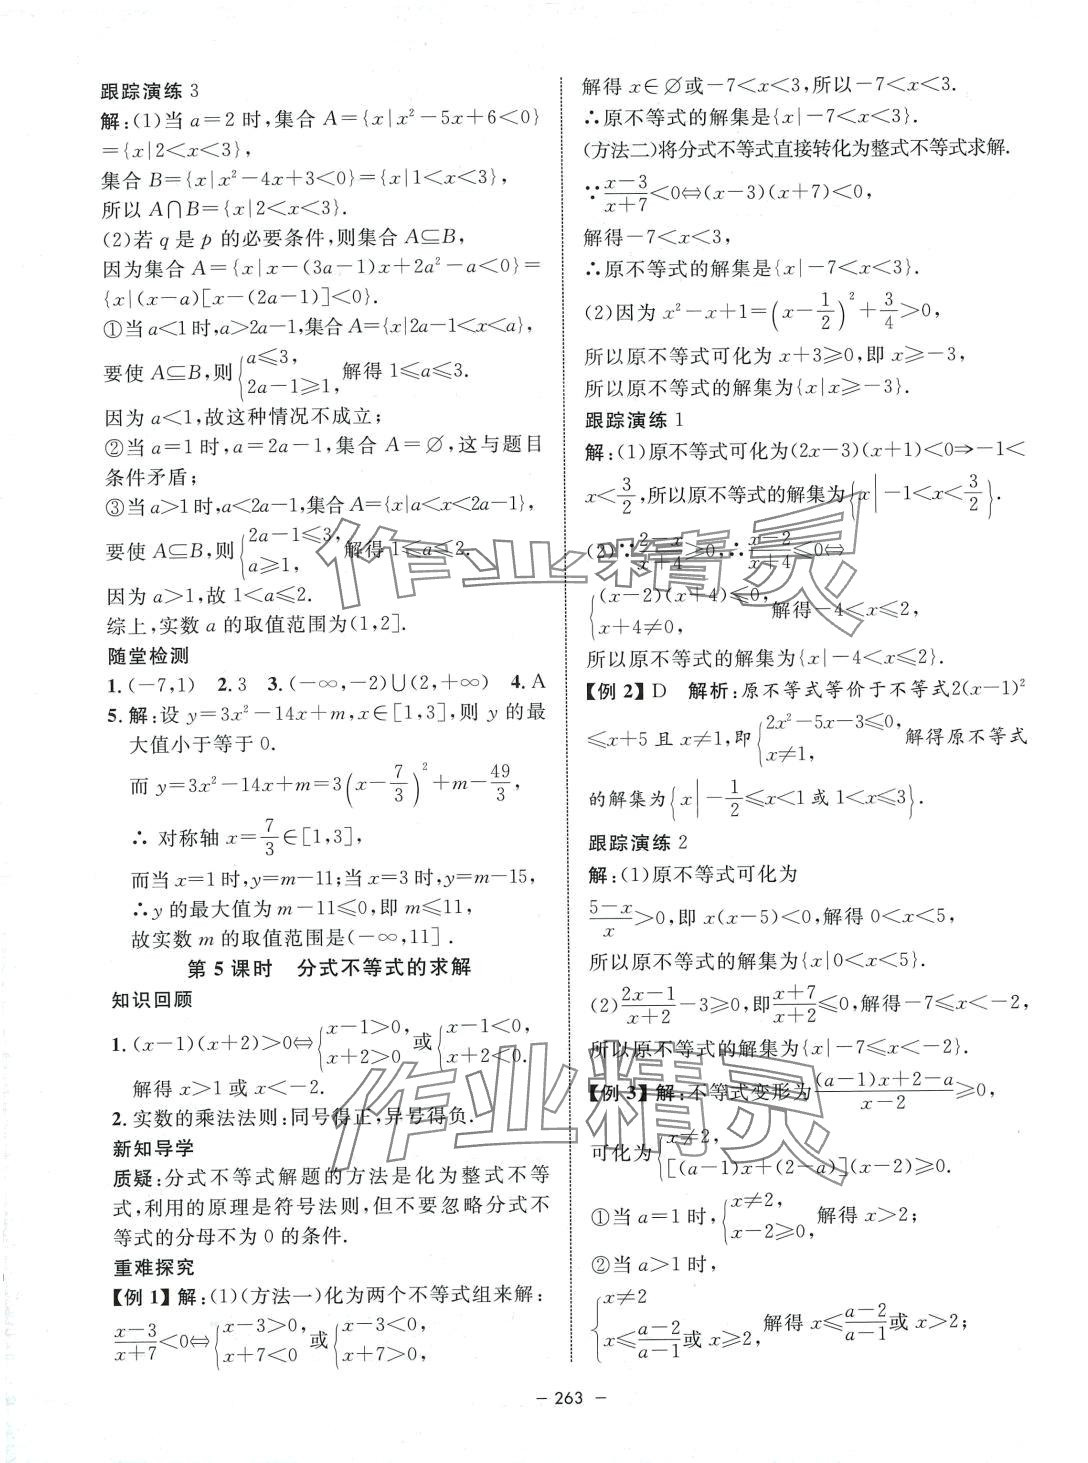 跟踪演练 3
解:(1)当 a=2 时,集合 A={x|x²-5x+6<0}
={x|2<x<3},
集合 B={x|x²-4x+3<0}={x|1<x<3},
所以 A∩B={x|2<x<3}.
(2)若 q 是 p 的必要条件,则集合 A⊆B,
因为集合 A={x|x-(3a-1)x+2a²-a<0}=
{x|(x-a)[x-(2a-1)]<0}.
①当 a<1 时,a>2a-1,集合 A={x|2a-1<x<a},
要使 A⊆B,则{a≤3, 2a-1≥1, 解得 1≤a≤3.
因为 a<1,故这种情况不成立;
②当 a=1 时,a=2a-1,集合 A=∅,这与题目
条件矛盾;
③当 a>1 时,a<2a-1,集合 A={x|a<x<2a-1},
要使 A⊆B,则{2a-1≤3, a≥1, 解得 1≤a≤2.
因为 a>1,故 1<a≤2.
综上,实数 a 的取值范围为(1,2].
随堂检测
1.(-7,1) 2.3 3.(-∞,-2)∪(2,+∞) 4.A
5.解:设 y=3x²-14x+m,x∈[1,3],则 y 的最
大值小于等于 0.
而 y=3x²-14x+m=3(x-7/3)²+m-49/3,
∴ 对称轴 x=7/3∈[1,3],
而当 x=1 时,y=m-11;当 x=3 时,y=m-15,
∴y 的最大值为 m-11≤0,即 m≤11,
故实数 m 的取值范围是(-∞,11].
第 5 课时 分式不等式的求解
知识回顾
1.(x-1)(x+2)>0⇔{x-1>0, x+2>0 或{x-1<0, x+2<0.
解得 x>1 或 x<-2.
2.实数的乘法法则:同号得正,异号得负.
新知导学
质疑:分式不等式解题的方法是化为整式不等
式,利用的原理是符号法则,但不要忽略分式不
等式的分母不为 0 的条件.
重难探究
【例 1】解:(1)(方法一)化为两个不等式组来解:
(x-3)/(x+7)<0⇔{x-3>0, x+7<0 或{x-3<0, x+7>0,
解得 x∈∅或-7<x<3,所以-7<x<3.
∴原不等式的解集是{x|-7<x<3}.
(方法二)将分式不等式直接转化为整式不等式求解.
∵(x-3)/(x+7)<0⇔(x-3)(x+7)<0,
解得-7<x<3,
∴原不等式的解集是{x|-7<x<3}.
(2)因为 x²-x+1=(x-1/2)²+3/4>0,
所以原不等式可化为 x+3≥0,即 x≥-3,
所以原不等式的解集为{x|x≥-3}.
跟踪演练 1
解:(1)原不等式可化为(2x-3)(x+1)<0⇒-1<
x<3/2,所以原不等式的解集为{x|-1<x<3/2}.
(2)∵(2-x)/(x+4)≥0,∴(x-2)/(x+4)≤0⇔
{(x-2)(x+4)≤0, x+4≠0, 解得-4<x≤2,
所以原不等式的解集为{x|-4<x≤2}.
【例 2】D 解析:原不等式等价于不等式2(x-1)²
≤x+5 且 x≠1,即{2x²-5x-3≤0, x≠1, 解得原不等式
的解集为{x|-1/2≤x<1 或 1<x≤3}.
跟踪演练 2
解:(1)原不等式可化为
(5-x)/x>0,即 x(x-5)<0,解得 0<x<5,
所以原不等式的解集为{x|0<x<5}.
(2)(2x-1)/(x+2)-3≥0,即(x+7)/(x+2)≤0,解得-7≤x<-2,
所以原不等式的解集为{x|-7≤x<-2}.
【例 3】解:不等式变形为((a-1)x+2-a)/(x-2)≥0,
可化为{x≠2, [(a-1)x+(2-a)](x-2)≥0.
①当 a=1 时,{x≠2, x-2≥0, 解得 x>2;
②当 a>1 时,
{x≠2 x≤(a-2)/(a-1)或 x≥2, 解得 x≤(a-2)/(a-1)或 x>2;
- 263 -
作业精灵
作业精灵